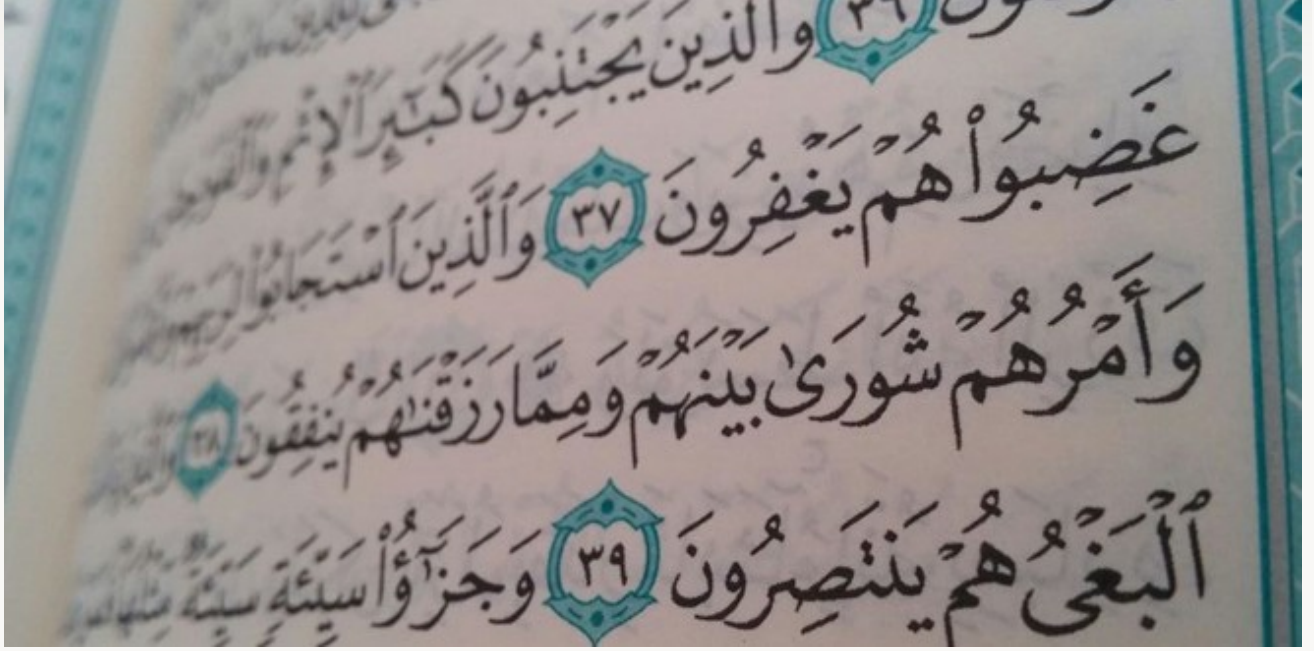 ٣٦ وَٱلَّذِينَ يَجۡتَنِبُونَ كَبَٰٓئِرَ ٱلۡإِثۡمِ
غَضِبُواْ هُمۡ يَغۡفِرُونَ ٣٧ وَٱلَّذِينَ ٱسۡتَجَابُواْ لِرَبِّهِمۡ
وَأَمۡرُهُمۡ شُورَىٰ بَيۡنَهُمۡ وَمِمَّا رَزَقۡنَٰهُمۡ يُنفِقُونَ ٣٨ وَٱلَّذِينَ
ٱلۡبَغۡيُ هُمۡ يَنتَصِرُونَ ٣٩ وَجَزَٰٓؤُاْ سَيِّئَةٖ سَيِّئَةٞ مِّثۡلُهَا